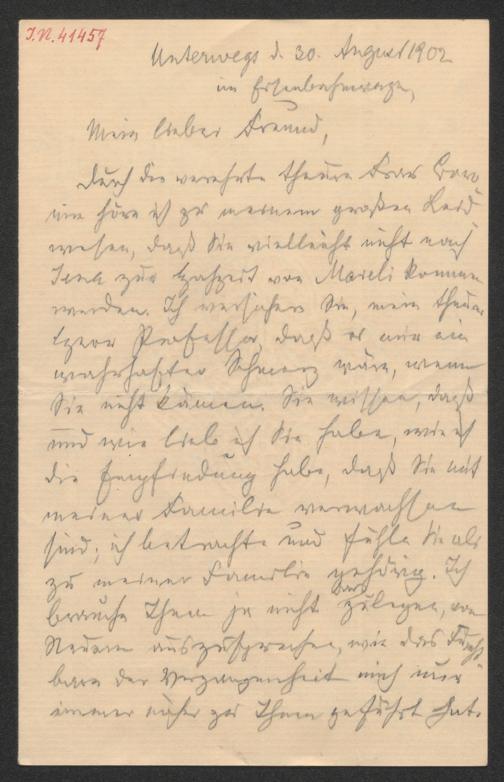 I.N. 41457
Unterwegs d. 30. August 1902
im Eisenbahnwagen,
Mein lieber Freund,
Durch die verehrte theure Frau
höre ich zu meinem großen Leid-
wesen, daß Sie vielleicht nicht nach
zur Hochzeit von kommen
werden. Ich versichere Sie, mein theurer
Herr Professor, daß es mir ein
wahrhafter Schmerz wäre, wenn
Sie nicht kämen. Sie wissen, daß
und wie lieb ich Sie habe, wie ich
die Empfindung habe, daß Sie mit
meiner Familie verwachsen
sind; ich betrachte und fühle Sie als
zu meiner Familie gehörig. Ich
brauche Ihnen ja nicht von
Neuem auszusprechen, wie das Furcht-
bare der Vergangenheit mich nur
immer näher zu Ihnen geführt hat.